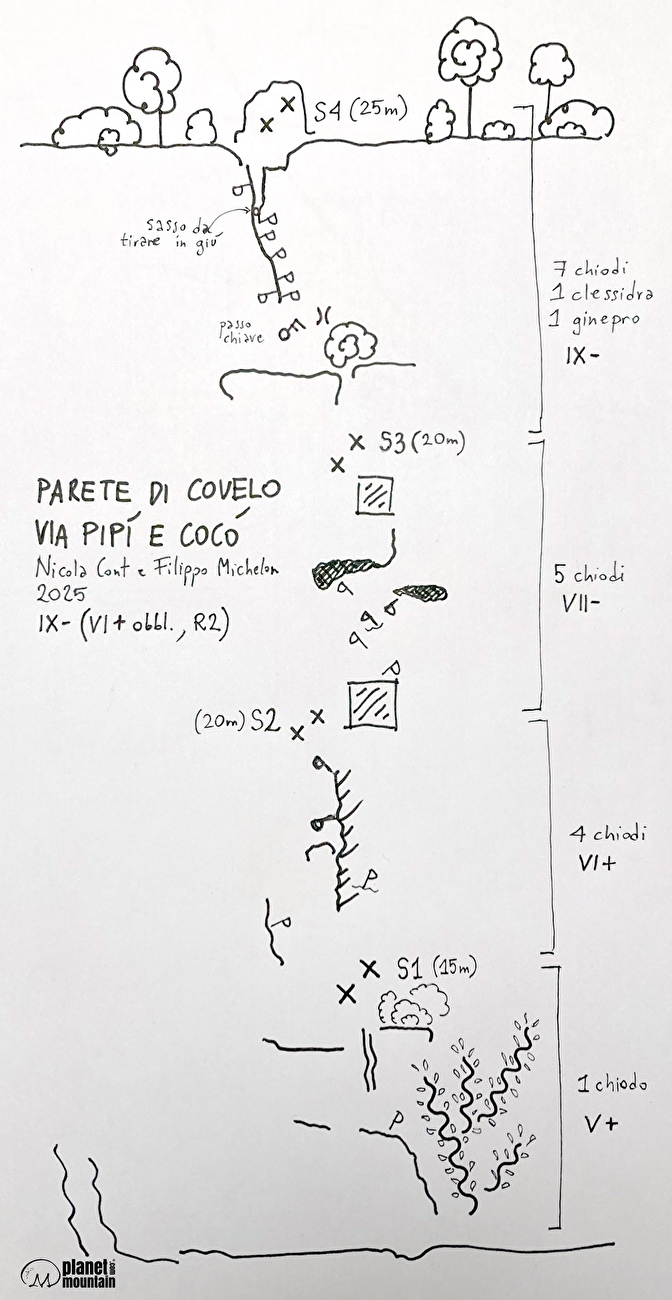 S4 (25m)
sasso da
tirare in giú
7 chiodi
1 clessidra
1 ginepro
IX-
passo
chiave
S3 (20m)
PARETE DI COVELO
VIA PIPÍ E COCÓ
Nicola Cont e Filippo Michelon
2025
IX- (VI+ obbl., R2)
5 chiodi
VII-
(20m) S2
4 chiodi
VI+
S1 (15m)
1 chiodo
V+
planet
mountain
.com